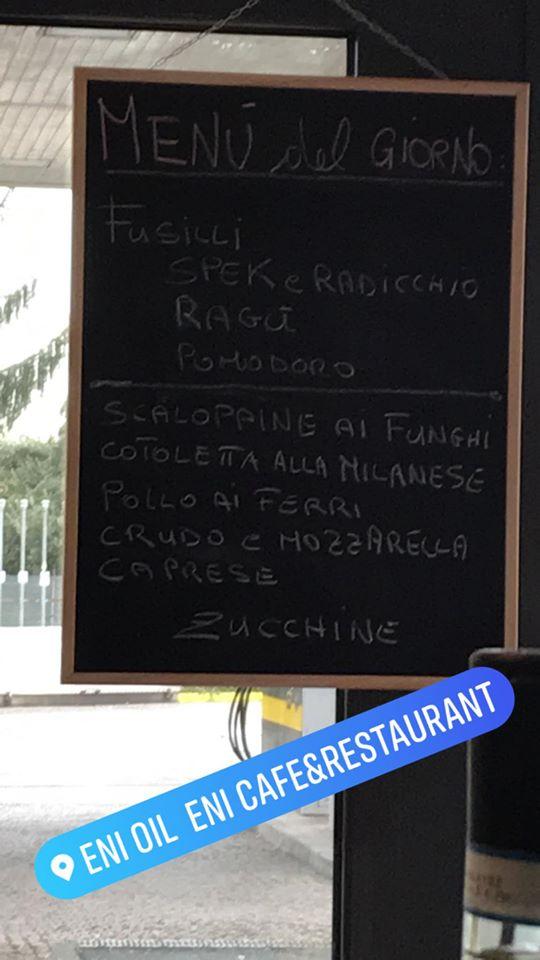 MENÚ del GIORNO:
FUSILLI
SPEK e RADICCHIO
RAGÚ
POMODORO
SCALOPPINE AI FUNGHI
COTOLETTA ALLA MILANESE
POLLO AI FERRI
CRUDO e MOZZARELLA
CAPRESE
ZUCCHINE
ENI OIL ENI CAFE&RESTAURANT